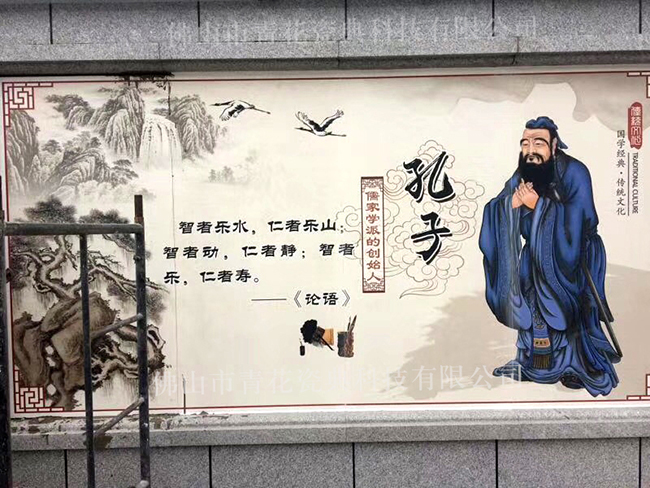 佛山市青花瓷典科技有限公司
传统文化
国学经典·传统文化
TRADITIONAL CULTURE
孔子
儒家学派的创始人
智者乐水，仁者乐山；
智者动，仁者静；智者
乐，仁者寿。
——《论语》
佛山市青花瓷典科技有限公司